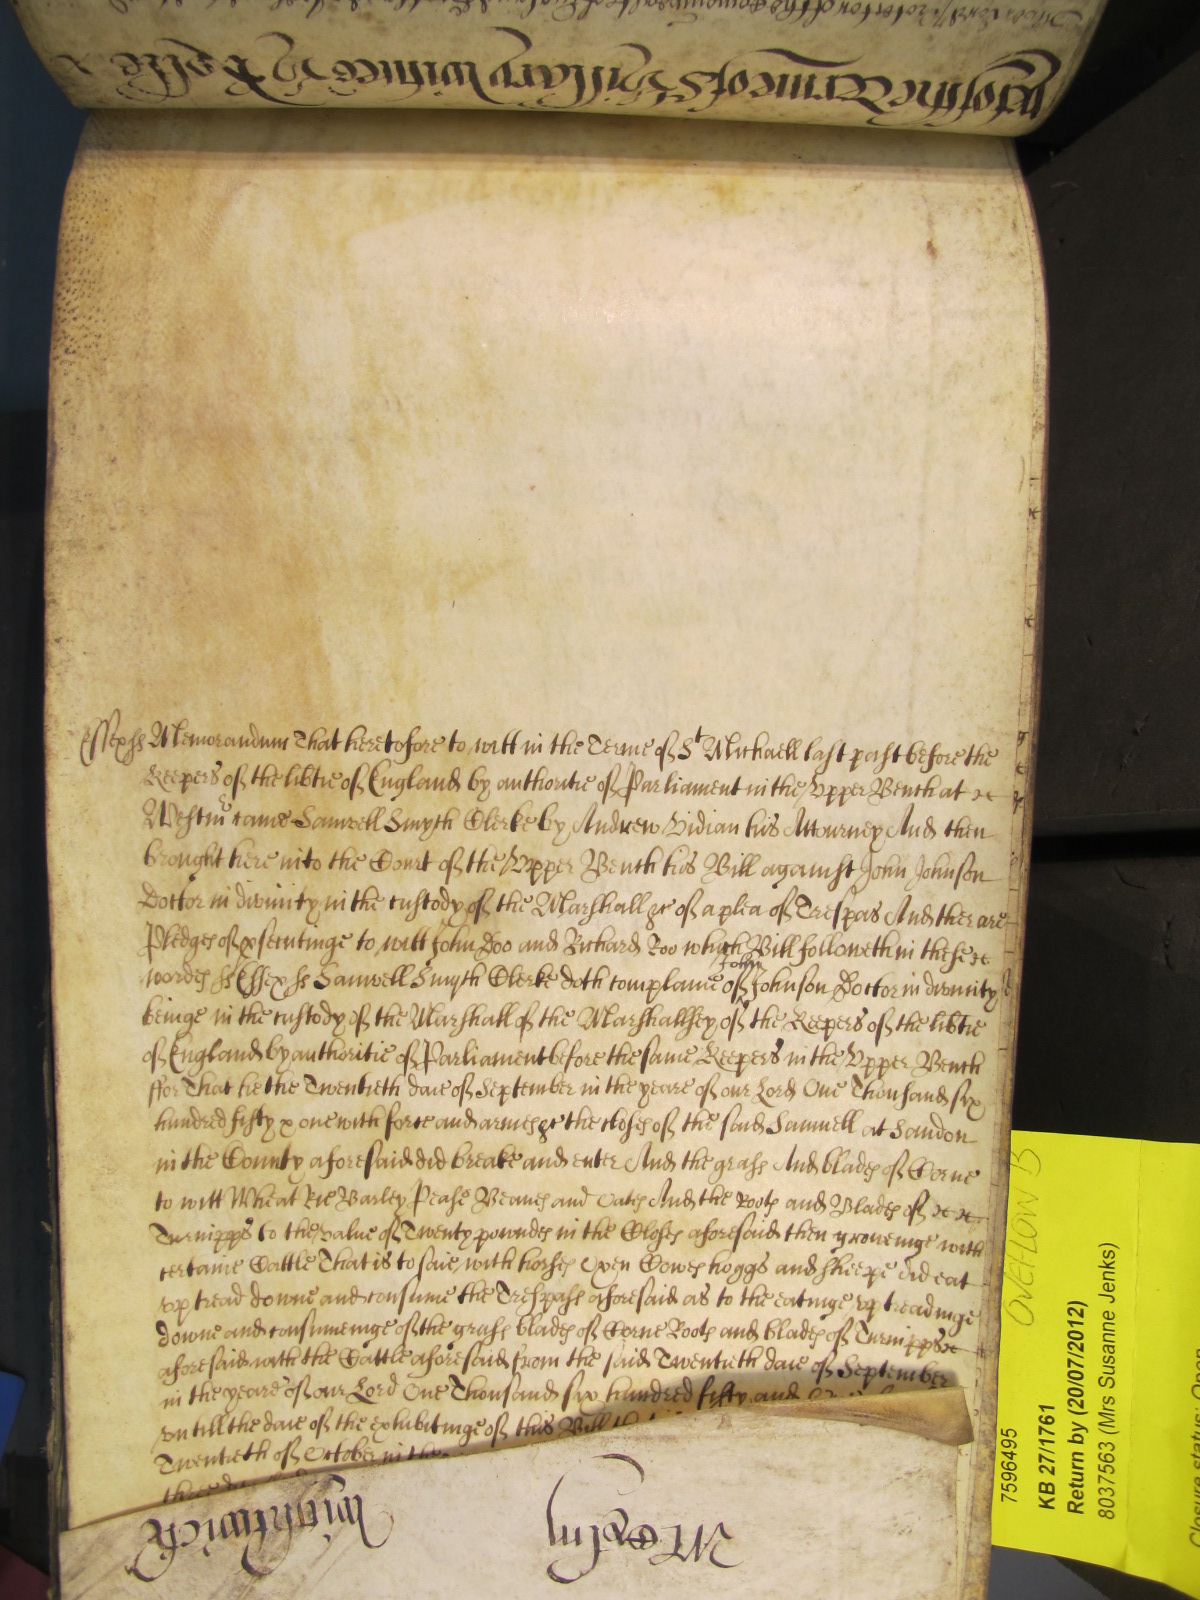 Essex ss Memorandum That heretofore to witt in the Terme of St Michaell last past before the
Keepers of the libtie of England by authoritie of Parliament in the Upper Bench at
Westm came Samuell Smyth Clerke by Andrew Vidian his Attourney And then
brought here into the Court of the Upper Bench his Bill against John Johnson
Doctor in divinity in the custody of the Marshall &c of a plea of Trespas And there are
Pledges of psecutinge to witt John Doo and Richard Roo which Bill followeth in these
wordes ss Essex ss Samuell Smyth Clerke doth complaine of John Johnson Doctor in divinity
beinge in the custody of the Marshall of the Marshallsey of the Keepers of the libtie
of England by authoritie of Parliament before the same Keepers in the Upper Bench
ffor That he the Twentieth daie of September in the yeare of our Lord One Thousand six
hundred fifty & one with force and armes &c the closes of the said Samuell at Sandon
in the County aforesaid did breake and enter And the grass And blades of Corne
to witt Wheat Rie Barley Pease Beanes and Oates And the Roots and Blades of
Turnipps to the value of Twenty powndes in the Closes aforesaid then groweinge with
certaine Cattle That is to saie with horses Oxen Cowes hoggs and sheepe did eat
up tread downe and consume the Trespass aforesaid as to the eatinge up treadinge
downe and consumeinge of the grass blades of Corne Roots and blades of Turnipps
aforesaid with the Cattle aforesaid from the said Twentieth daie of September
in the yeare of our Lord One Thousand six hundred fifty and
untill the daie of the exhibitinge of this Bill
Twentieth of October in the
of the Terme of St Hillary witnes H Rolle
Wightwick
7596495
KB 27/1761
Return by (20/07/2012)
8037563 (Mrs Susanne Jenks)
OVERFLOW B
Closure status: Open